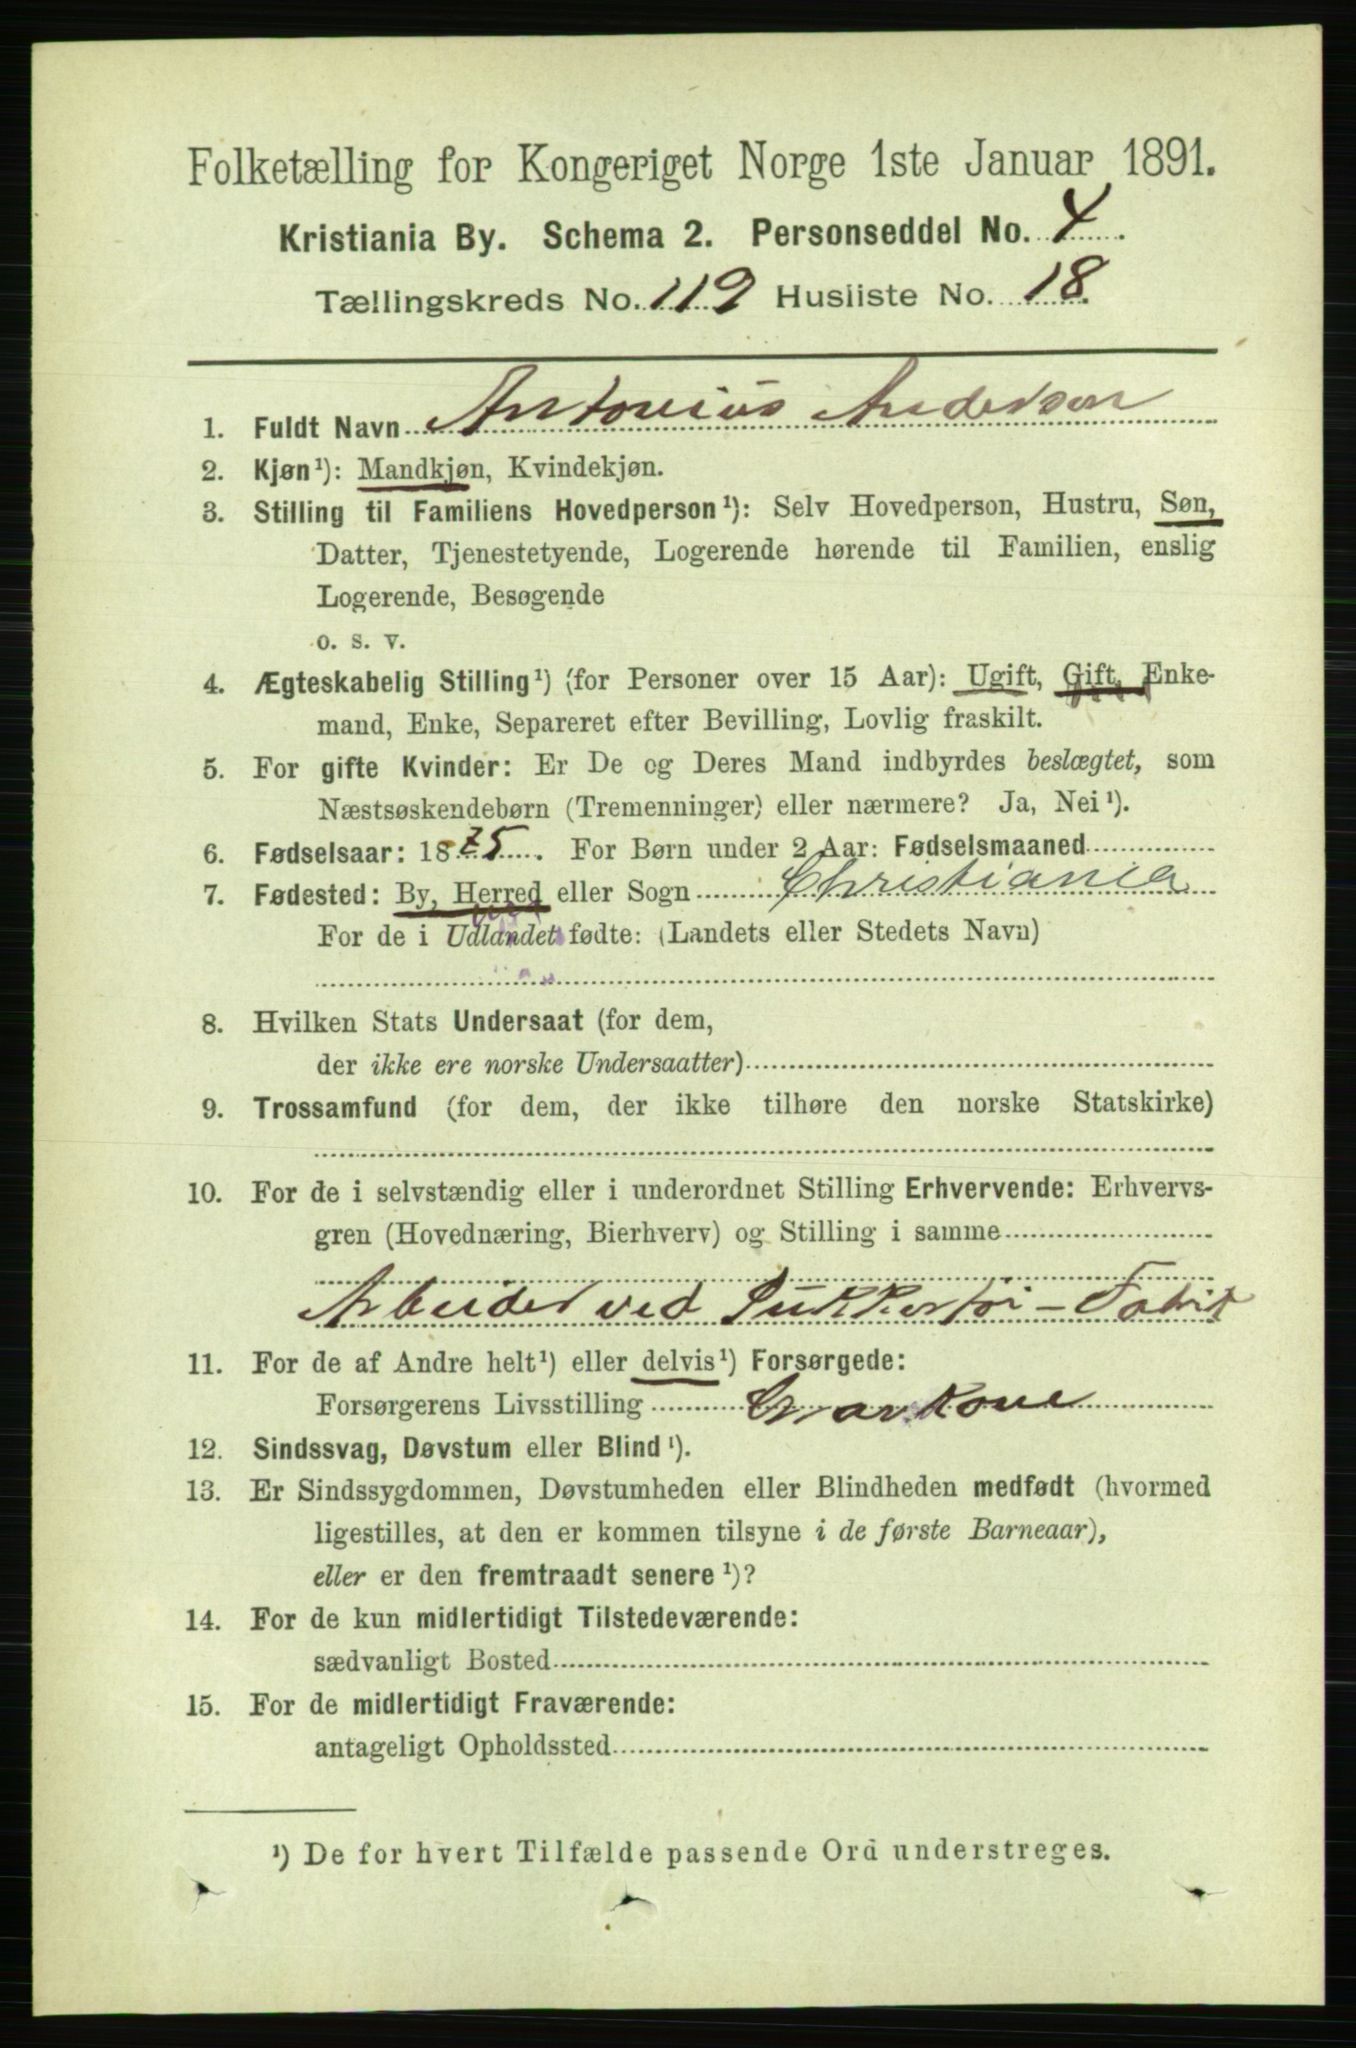 Folketælling for Kongeriget Norge 1ste Januar 1891.
Kristiania By. Schema 2. Personseddel No. 4
Tællingskreds No. 119 Husliste No. 18.
1. Fuldt Navn Antonius Andersen
2. Kjøn¹): Mandkjøn, Kvindekjøn.
3. Stilling til Familiens Hovedperson¹): Selv Hovedperson, Hustru, Søn,
Datter, Tjenestetyende, Logerende hørende til Familien, enslig
Logerende, Besøgende
o. s. v.
4. Ægteskabelig Stilling¹) (for Personer over 15 Aar): Ugift, Gift, Enke-
mand, Enke, Separeret efter Bevilling, Lovlig fraskilt.
5. For gifte Kvinder: Er De og Deres Mand indbyrdes beslægtet, som
Næstsøskendebørn (Tremenninger) eller nærmere? Ja, Nei¹).
6. Fødselsaar: 1875. For Børn under 2 Aar: Fødselsmaaned
7. Fødested: By, Herred eller Sogn Christiania
For de i Udlandet fødte: (Landets eller Stedets Navn)
8. Hvilken Stats Undersaat (for dem,
der ikke ere norske Undersaatter)
9. Trossamfund (for dem, der ikke tilhøre den norske Statskirke)
10. For de i selvstændig eller i underordnet Stilling Erhvervende: Erhvervs-
gren (Hovednæring, Bierhverv) og Stilling i samme
Arbeider ved Sukkertøi-Fabrik
11. For de af Andre helt¹) eller delvis¹) Forsørgede:
Forsørgerens Livsstilling
12. Sindssvag, Døvstum eller Blind¹).
13. Er Sindssygdommen, Døvstumheden eller Blindheden medfødt (hvormed
ligestilles, at den er kommen tilsyne i de første Barneaar),
eller er den fremtraadt senere¹)?
14. For de kun midlertidigt Tilstedeværende:
sædvanligt Bosted
15. For de midlertidigt Fraværende:
antageligt Opholdssted
¹) De for hvert Tilfælde passende Ord understreges.